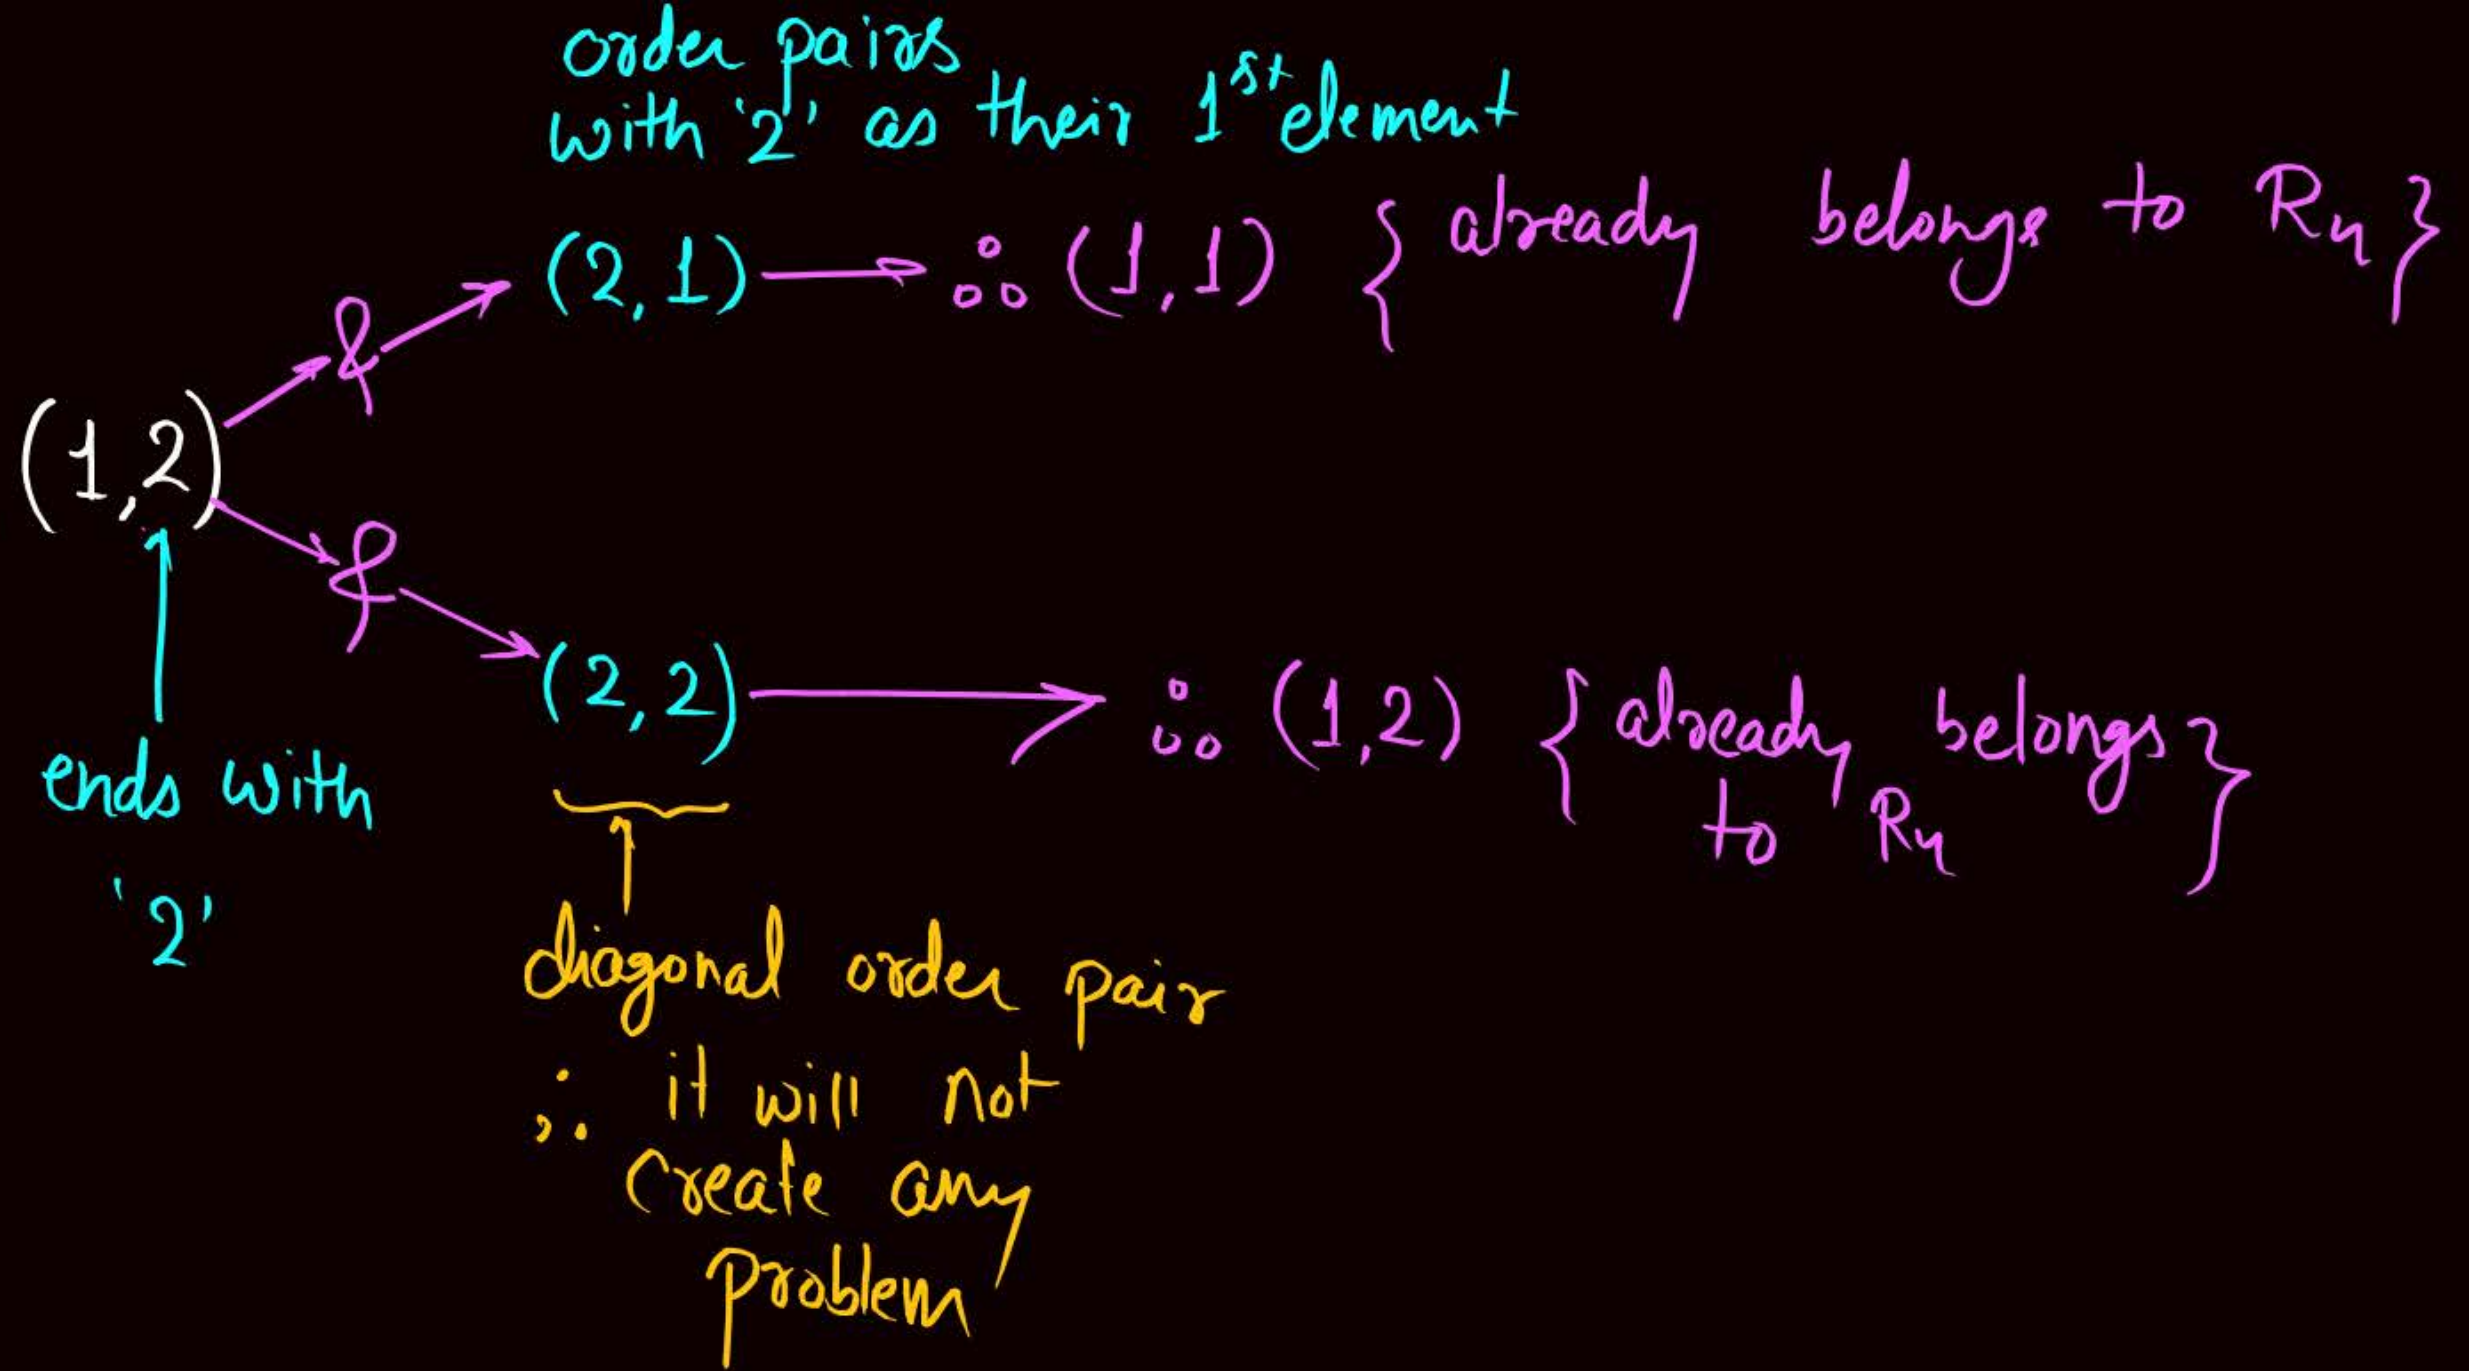 order pairs
with '2' as their 1st element
(2,1) ∴ (1,1) { already belongs to R4 }
&
(1,2)
&
(2,2) ∴ (1,2) { already belongs
to R4 }
ends with
'2'
diagonal order pair
∴ it will not
create any
problem